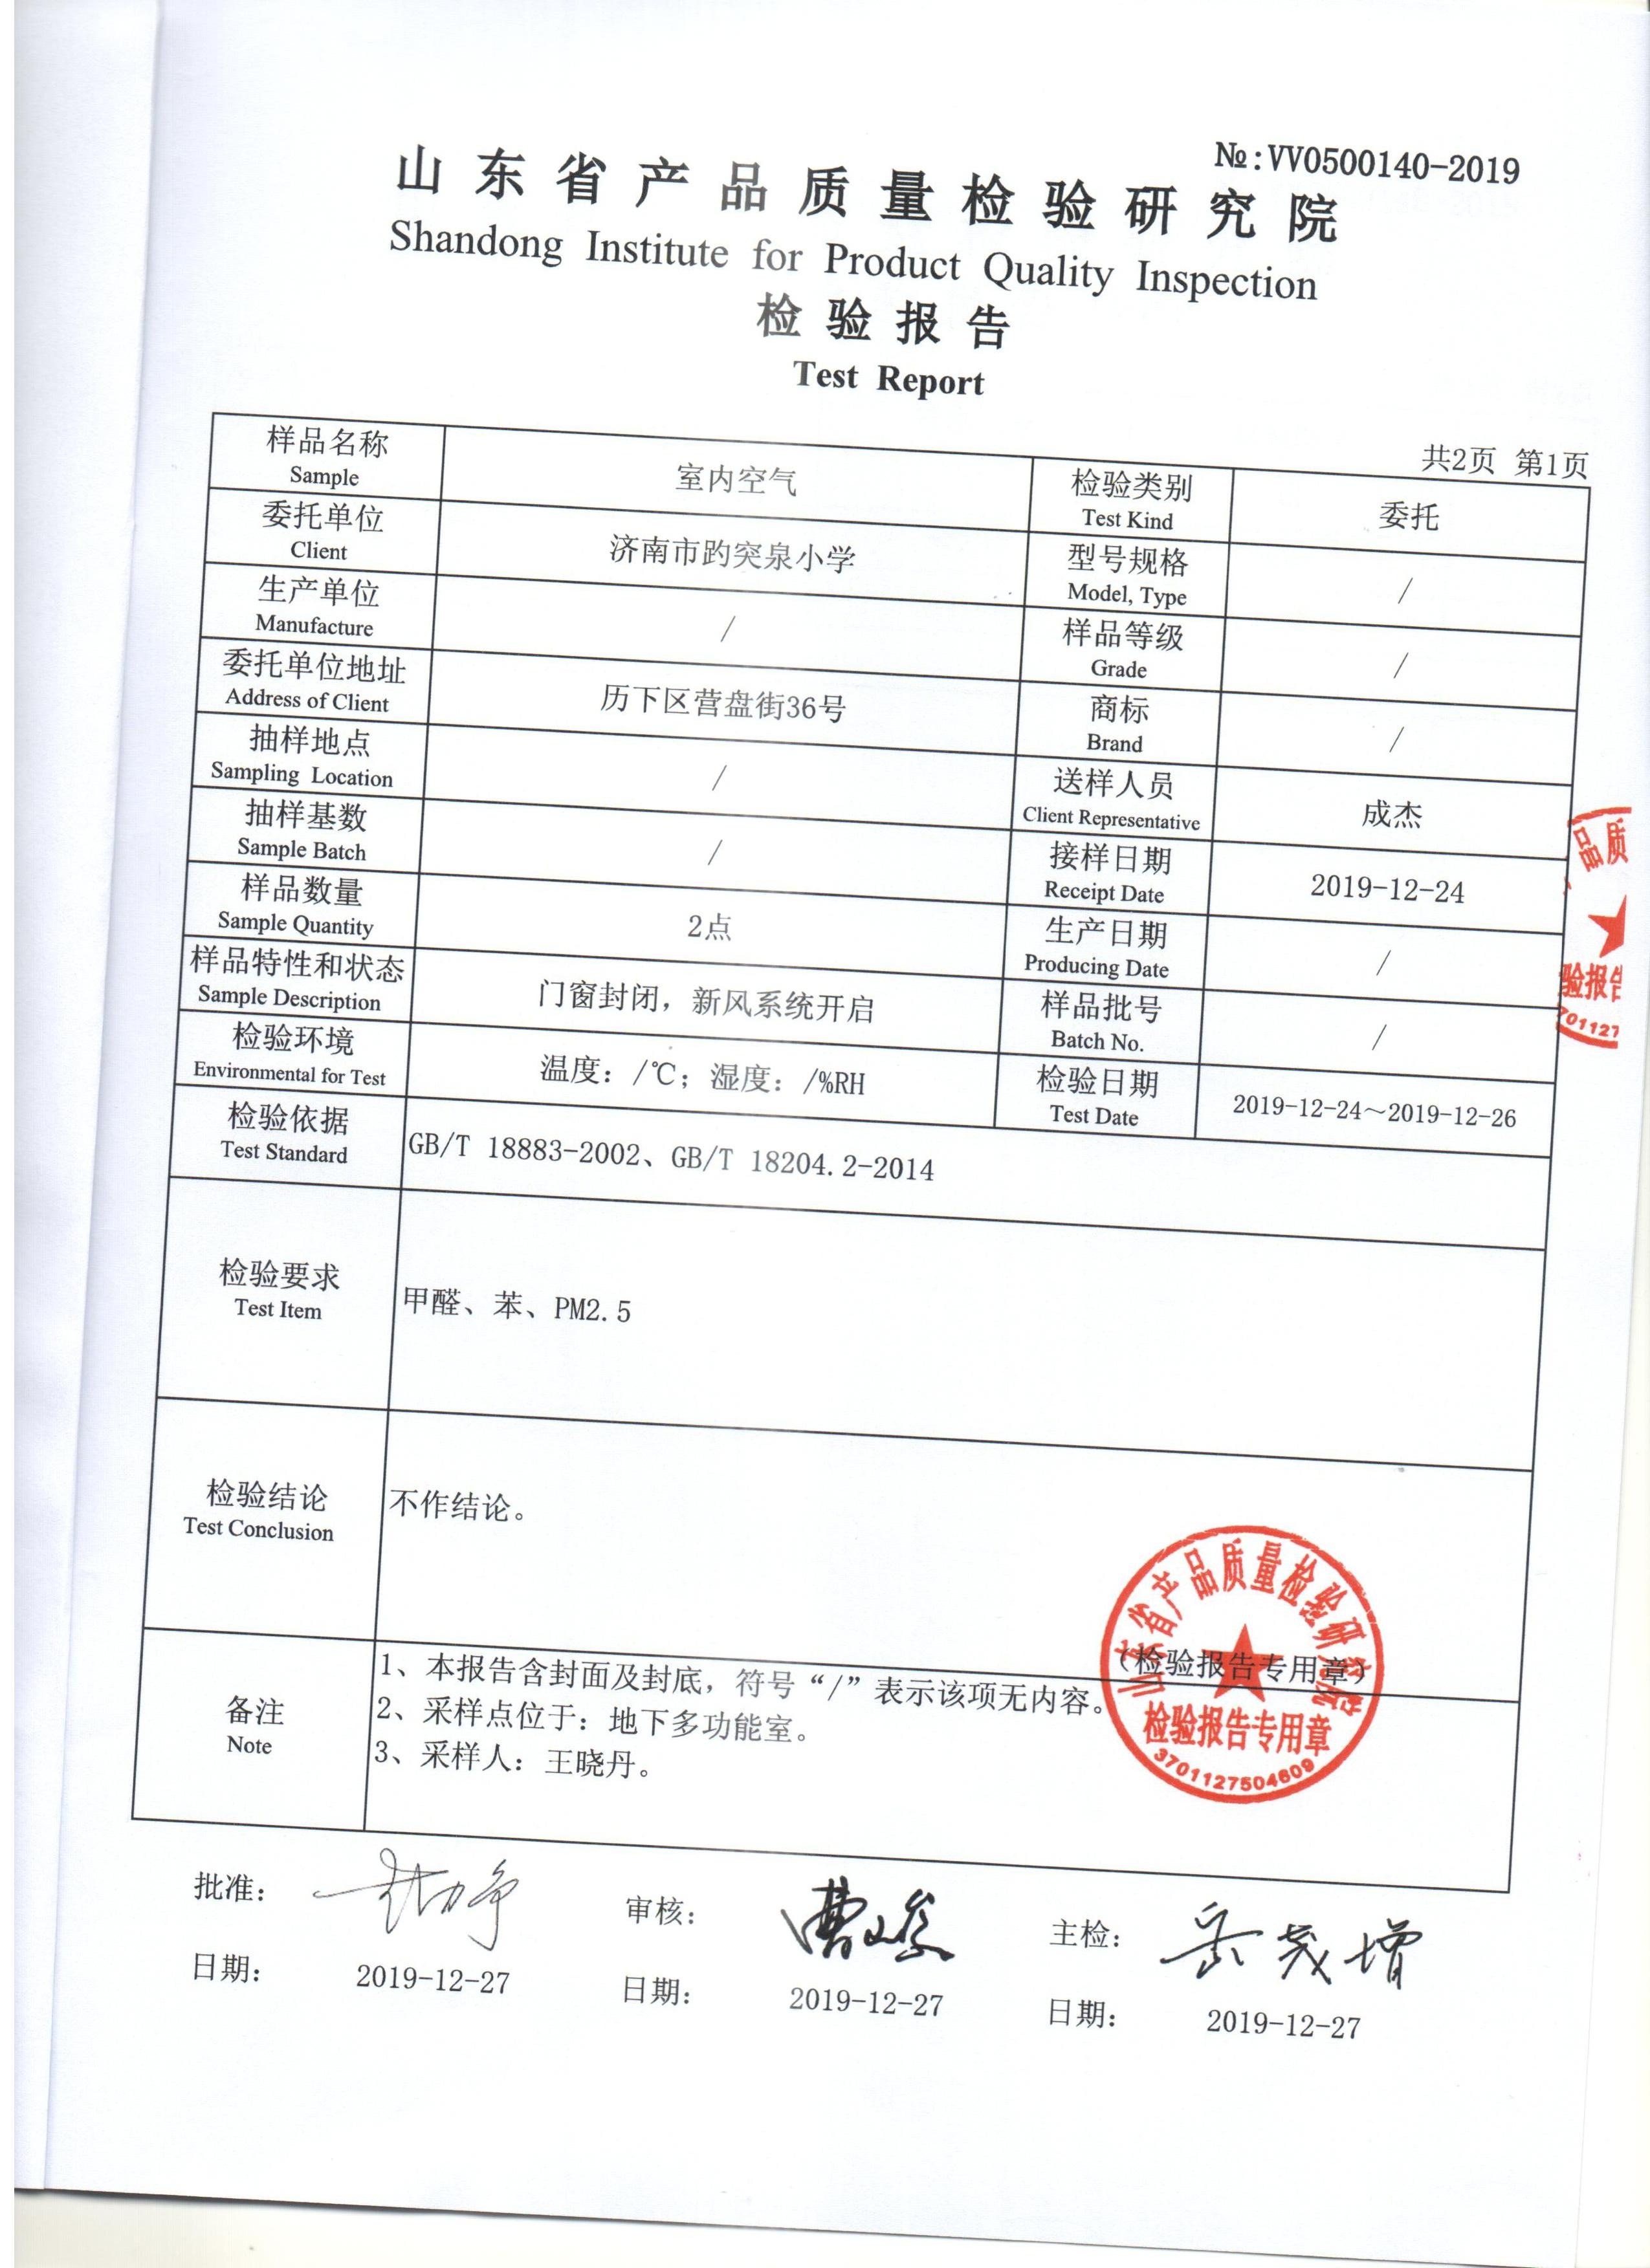 №:VV0500140-2019
山东省产品质量检验研究院
Shandong Institute for Product Quality Inspection
检验报告
Test Report
共2页 第1页
样品名称
Sample
室内空气
检验类别
Test Kind
委托
委托单位
Client
济南市趵突泉小学
型号规格
Model, Type
/
生产单位
Manufacture
/
样品等级
Grade
/
委托单位地址
Address of Client
历下区营盘街36号
商标
Brand
/
抽样地点
Sampling Location
/
送样人员
Client Representative
成杰
抽样基数
Sample Batch
/
接样日期
Receipt Date
2019-12-24
样品数量
Sample Quantity
2点
生产日期
Producing Date
/
样品特性和状态
Sample Description
门窗封闭，新风系统开启
样品批号
Batch No.
/
检验环境
Environmental for Test
温度：/℃；湿度：/%RH
检验日期
Test Date
2019-12-24～2019-12-26
检验依据
Test Standard
GB/T 18883-2002、GB/T 18204.2-2014
检验要求
Test Item
甲醛、苯、PM2.5
检验结论
Test Conclusion
不作结论。
（检验报告专用章）
山东省产品质量检验研究院
检验报告专用章
3701127504609
品质
验报告
701127
备注
Note
1、本报告含封面及封底，符号“/”表示该项无内容。
2、采样点位于：地下多功能室。
3、采样人：王晓丹。
批准：
审核：
主检：
岳茂增
日期：
2019-12-27
日期：
2019-12-27
日期：
2019-12-27